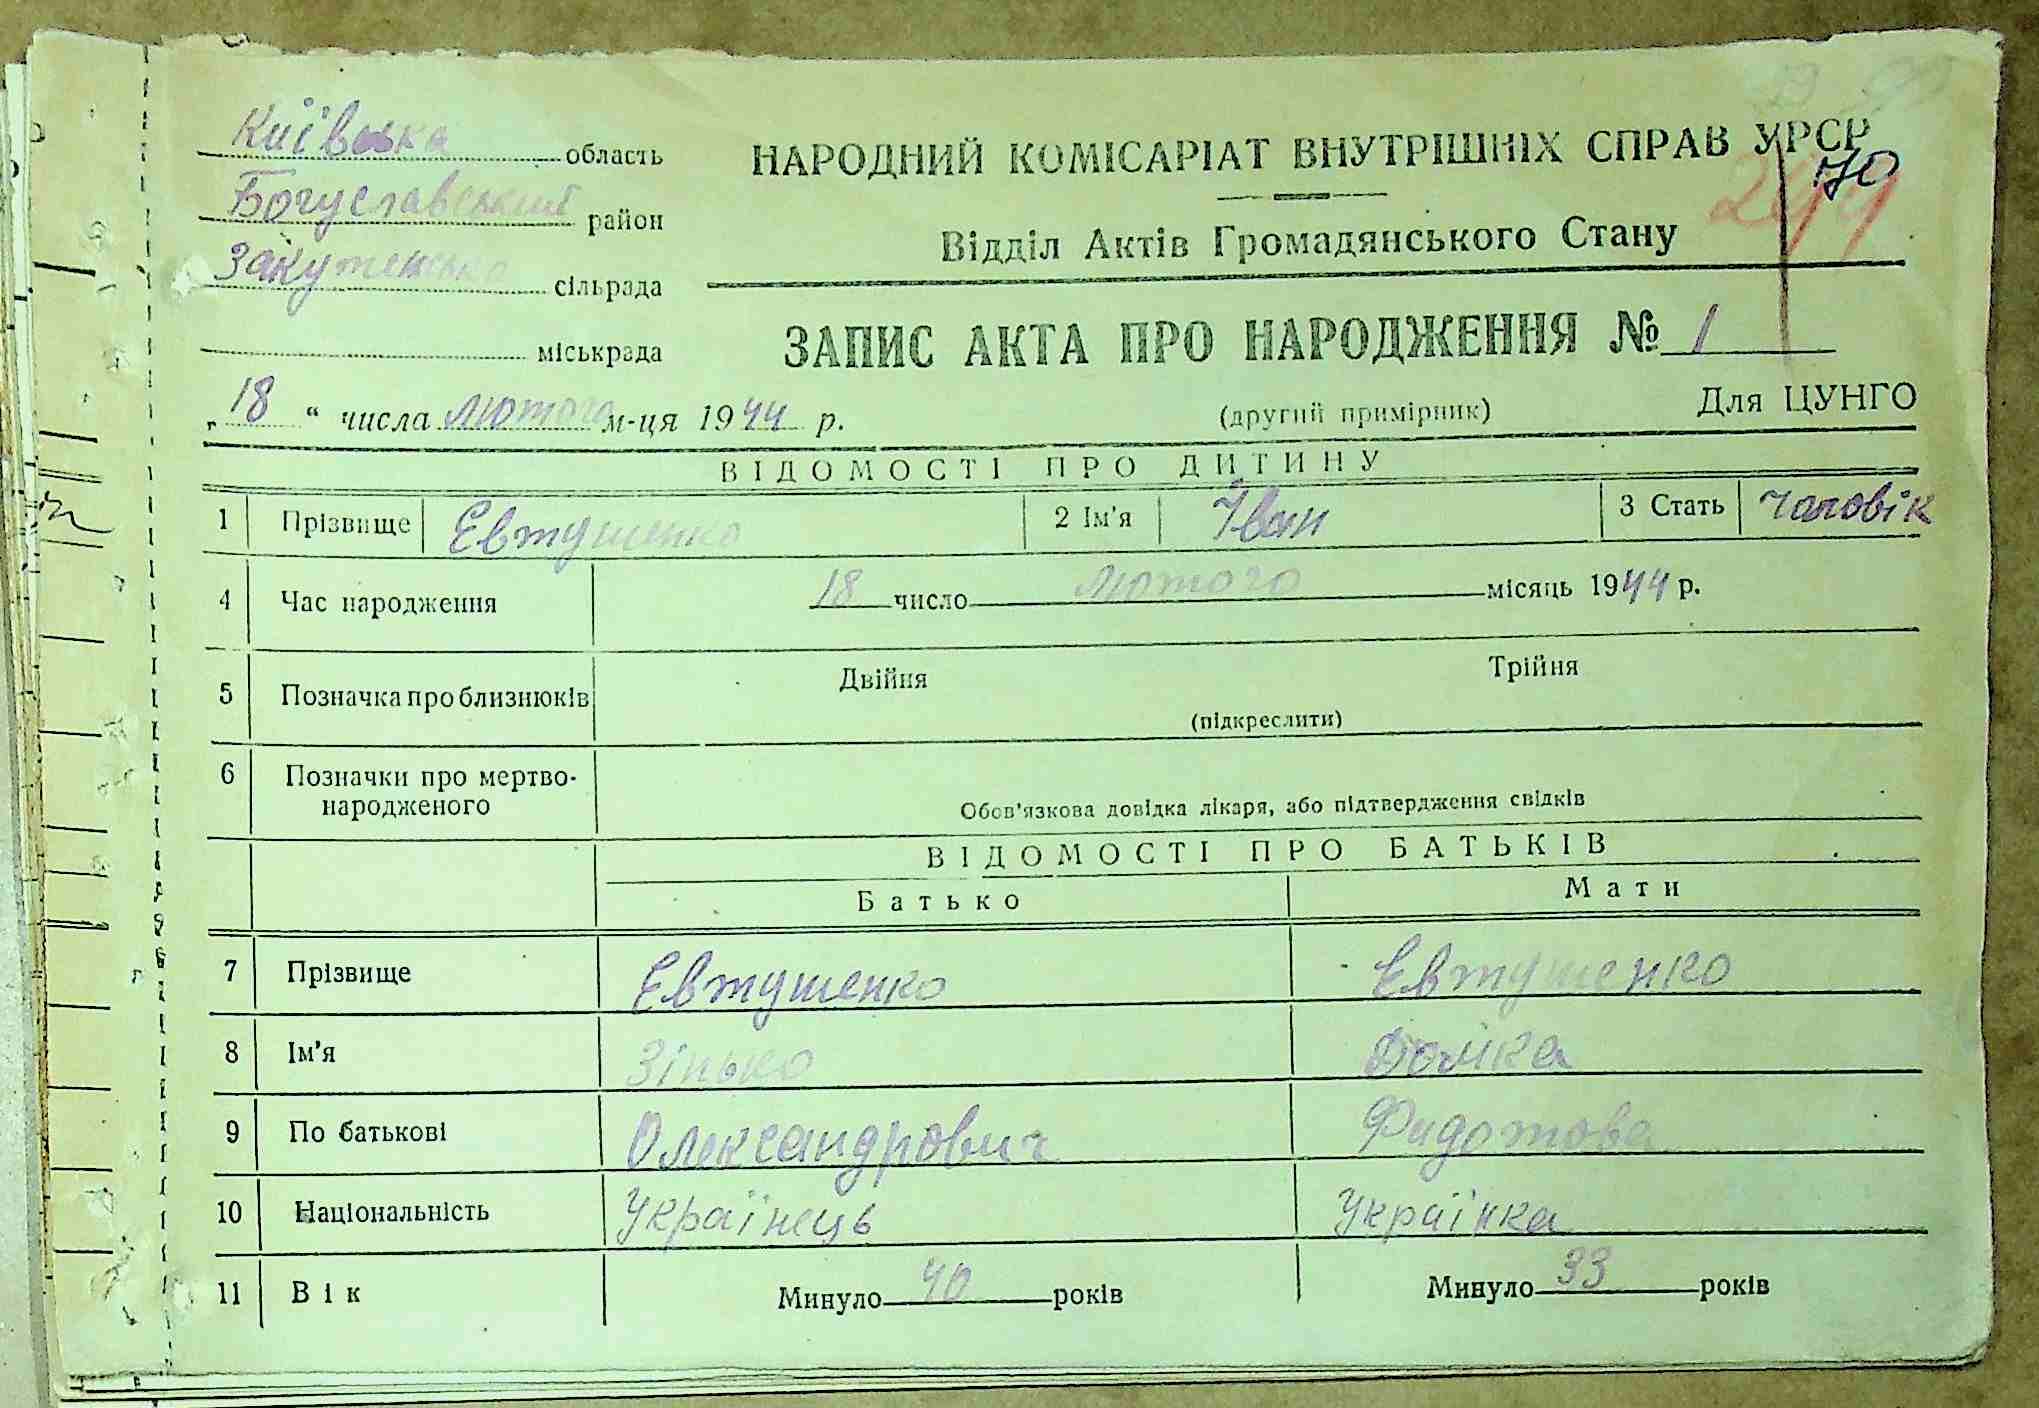 Київська область
Богуславський район
Закутенська сільрада
міськрада
НАРОДНИЙ КОМІСАРІАТ ВНУТРІШНІХ СПРАВ УРСР
70
Відділ Актів Громадянського Стану
ЗАПИС АКТА ПРО НАРОДЖЕННЯ № 1
„18“ числа лютого м-ця 1944 р.
(другий примірник)
Для ЦУНГО
ВІДОМОСТІ ПРО ДИТИНУ
1 Прізвище Евтушенко 2 Ім'я Іван 3 Стать чоловік
4 Час народження 18 число лютого місяць 1944 р.
5 Позначка про близнюків Двійня Трійня
(підкреслити)
6 Позначки про мертво-
народженого
Обов'язкова довідка лікаря, або підтвердження свідків
ВІДОМОСТІ ПРО БАТЬКІВ
Батько Мати
7 Прізвище Евтушенко Евтушенко
8 Ім'я Зінько Домка
9 По батькові Олександрович Фидотова
10 Національність Українець Українка
11 Вік Минуло 40 років Минуло 33 років